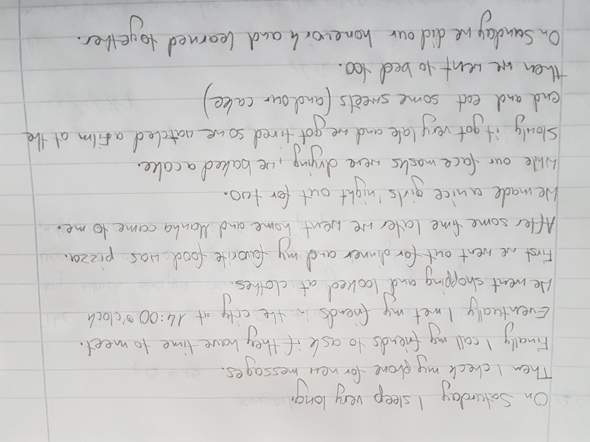 On Saturday I sleep very long.
Then I check my phone for new messages.
Finally I call my friends to ask if they have time to meet.
Eventually I met my friends in the city at 14:00 o'clock
We went shopping and looked at clothes.
First we went out for dinner and my favorite food was pizza.
After some time later we went home and Hanka came to me.
We made a nice girls' night out for two.
While our face masks were drying, we baked a cake.
Slowly it got very late and we got tired so we watched a film at the
end and eat some sweets (and our cake)
then we went to bed too.
On Sunday we did our homework and learned together.